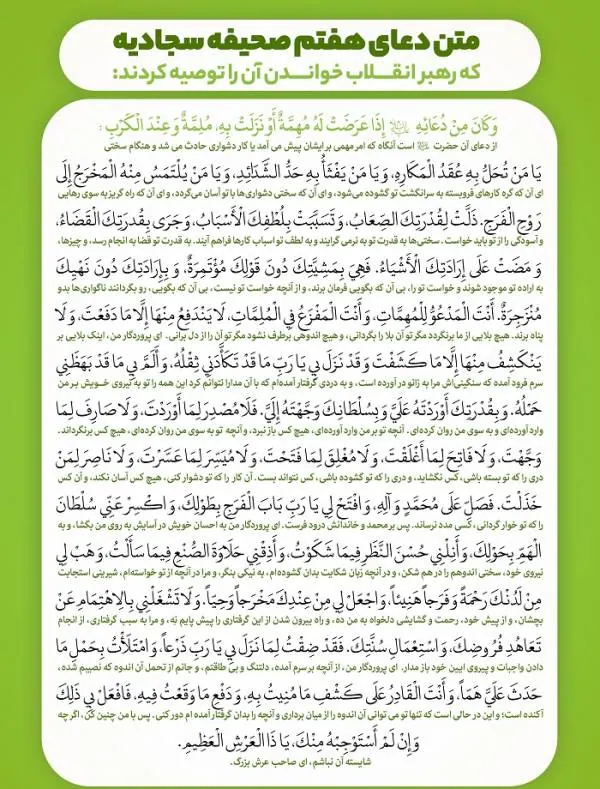 متن دعای هفتم صحیفه سجادیه
که رهبر انقلاب خواندن آن را توصیه کردند:
وَكَانَ مِنْ دُعَائِهِ إِذَا عَرَضَتْ لَهُ مُهِمَّةٌ أَوْ نَزَلَتْ بِهِ، مُلِمَّةٌ وَعِنْدَ الْكَرْبِ :
از دعای آن حضرت است آنگاه که امر مهمی برایشان پیش می آمد یا کار دشواری حادث می شد و هنگام سختی
يَا مَنْ تُحَلُّ بِهِ عُقَدُ الْمَكَارِهِ، وَيَا مَنْ يَفْثَأُ بِهِ حَدُّ الشَّدَائِدِ، وَيَا مَنْ يُلْتَمَسُ مِنْهُ الْمَخْرَجُ إِلَى
ای آن که گره کارهای فروبسته به سرانگشت تو گشوده می‌شود، و ای آن که سختی دشواری‌ها با تو آسان می‌گردد، و ای آن که راه گریز به سوی رهایی
رَوْحِ الْفَرَجِ. ذَلَّتْ لِقُدْرَتِكَ الصِّعَابُ، وَتَسَبَّبَتْ بِلُطْفِكَ الْأَسْبَابُ، وَجَرَى بِقُدْرَتِكَ الْقَضَاءُ،
و آسودگی را از تو باید خواست. سختی‌ها به قدرت تو به نرمی گرایند و به لطف تو اسباب کارها فراهم آیند. به قدرت تو قضا به انجام رسد، و چیزها،
وَمَضَتْ عَلَى إِرَادَتِكَ الْأَشْيَاءُ، فَهِيَ بِمَشِيَّتِكَ دُونَ قَوْلِكَ مُؤْتَمِرَةٌ، وَبِإِرَادَتِكَ دُونَ نَهْيِكَ
به اراده تو موجود شوند و خواست تو را، بی آن که بگویی فرمان برند، و از آنچه خواست تو نیست، بی آن که بگویی، رو بگردانند ناگواری‌ها بدو
مُنْزَجِرَةٌ. أَنْتَ الْمَدْعُوُّ لِلْمُهِمَّاتِ، وَأَنْتَ الْمَفْزَعُ فِي الْمُلِمَّاتِ، لَا يَنْدَفِعُ مِنْهَا إِلَّا مَا دَفَعْتَ، وَلَا
پناه برند. هیچ بلایی از ما برنگردد مگر تو آن بلا را بگردانی، و هیچ اندوهی برطرف نشود مگر تو آن را از دل برانی. ای پروردگار من، اینک بلایی بر
يَنْكَشِفُ مِنْهَا إِلَّا مَا كَشَفْتَ وَقَدْ نَزَلَ بِي يَا رَبِّ مَا قَدْ تَكَأَّدَنِي ثِقْلُهُ، وَأَلَمَّ بِي مَا قَدْ بَهَظَنِي
سرم فرود آمده که سنگینی‌اش مرا به زانو در آورده است، و به دردی گرفتار آمده‌ام که با آن مدارا نتوانم کرد این همه را تو به نیروی خویش بر من
حَمْلُهُ. وَبِقُدْرَتِكَ أَوْرَدْتَهُ عَلَيَّ وَبِسُلْطَانِكَ وَجَّهْتَهُ إِلَيَّ. فَلَا مُصْدِرَ لِمَا أَوْرَدْتَ، وَلَا صَارِفَ لِمَا
وارد آورده‌ای و به سوی من روان کرده‌ای. آنچه تو بر من وارد آورده‌ای، هیچ کس باز نبرد، و آنچه تو به سوی من روان کرده‌ای، هیچ کس برنگرداند.
وَجَّهْتَ، وَلَا فَاتِحَ لِمَا أَغْلَقْتَ، وَلَا مُغْلِقَ لِمَا فَتَحْتَ، وَلَا مُيَسِّرَ لِمَا عَسَّرْتَ، وَلَا نَاصِرَ لِمَنْ
دری را که تو بسته باشی، کس نگشاید، و دری را که تو گشوده باشی، کس نتواند بست. آن کار را که تو دشوار کنی، هیچ کس آسان نکند، و آن کس
خَذَلْتَ. فَصَلِّ عَلَى مُحَمَّدٍ وَآلِهِ، وَافْتَحْ لِي يَا رَبِّ بَابَ الْفَرَجِ بِطَوْلِكَ، وَاكْسِرْ عَنِّي سُلْطَانَ
را که تو خوار گردانی، کسی مدد نرساند. پس بر محمد و خاندانش درود فرست. ای پروردگار من به احسان خویش در آسایش به روی من بگشا، و به
الْهَمِّ بِحَوْلِكَ، وَأَنِلْنِي حُسْنَ النَّظَرِ فِيمَا شَكَوْتُ، وَأَذِقْنِي حَلَاوَةَ الصُّنْعِ فِيمَا سَأَلْتُ، وَهَبْ لِي
نیروی خود، سختی اندوهم را در هم شکن، و در آنچه زبان شکایت بدان گشوده‌ام، به نیکی بنگر، و مرا در آنچه از تو خواسته‌ام، شیرینی استجابت
مِنْ لَدُنْكَ رَحْمَةً وَفَرَجاً هَنِيئاً، وَاجْعَلْ لِي مِنْ عِنْدِكَ مَخْرَجاً وَحِيّاً. وَلَا تَشْغَلْنِي بِالِاهْتِمَامِ عَنْ
بچشان، و از پیش خود، رحمت و گشایشی دلخواه به من ده، و راه بیرون شدن از این گرفتاری را پیش پایم نِه، و مرا به سبب گرفتاری، از انجام
تَعَاهُدِ فُرُوضِكَ، وَاسْتِعْمَالِ سُنَّتِكَ. فَقَدْ ضِقْتُ لِمَا نَزَلَ بِي يَا رَبِّ ذَرْعاً، وَامْتَلَأْتُ بِحَمْلِ مَا
دادن واجبات و پیروی آیین خود باز مدار. ای پروردگار من، از آنچه بر سرم آمده، دلتنگ و بی طاقتم، و جانم از تحمل آن اندوه که نصیبم شده،
حَدَثَ عَلَيَّ هَمّاً، وَأَنْتَ الْقَادِرُ عَلَى كَشْفِ مَا مُنِيتُ بِهِ، وَدَفْعِ مَا وَقَعْتُ فِيهِ، فَافْعَلْ بِي ذَلِكَ
آکنده است؛ و این در حالی است که تنها تو می توانی آن اندوه را از میان برداری و آنچه را بدان گرفتار آمده ام دور کنی. پس با من چنین کن، اگرچه
وَإِنْ لَمْ أَسْتَوْجِبْهُ مِنْكَ، يَا ذَا الْعَرْشِ الْعَظِيمِ.
شایسته آن نباشم، ای صاحب عرش بزرگ.